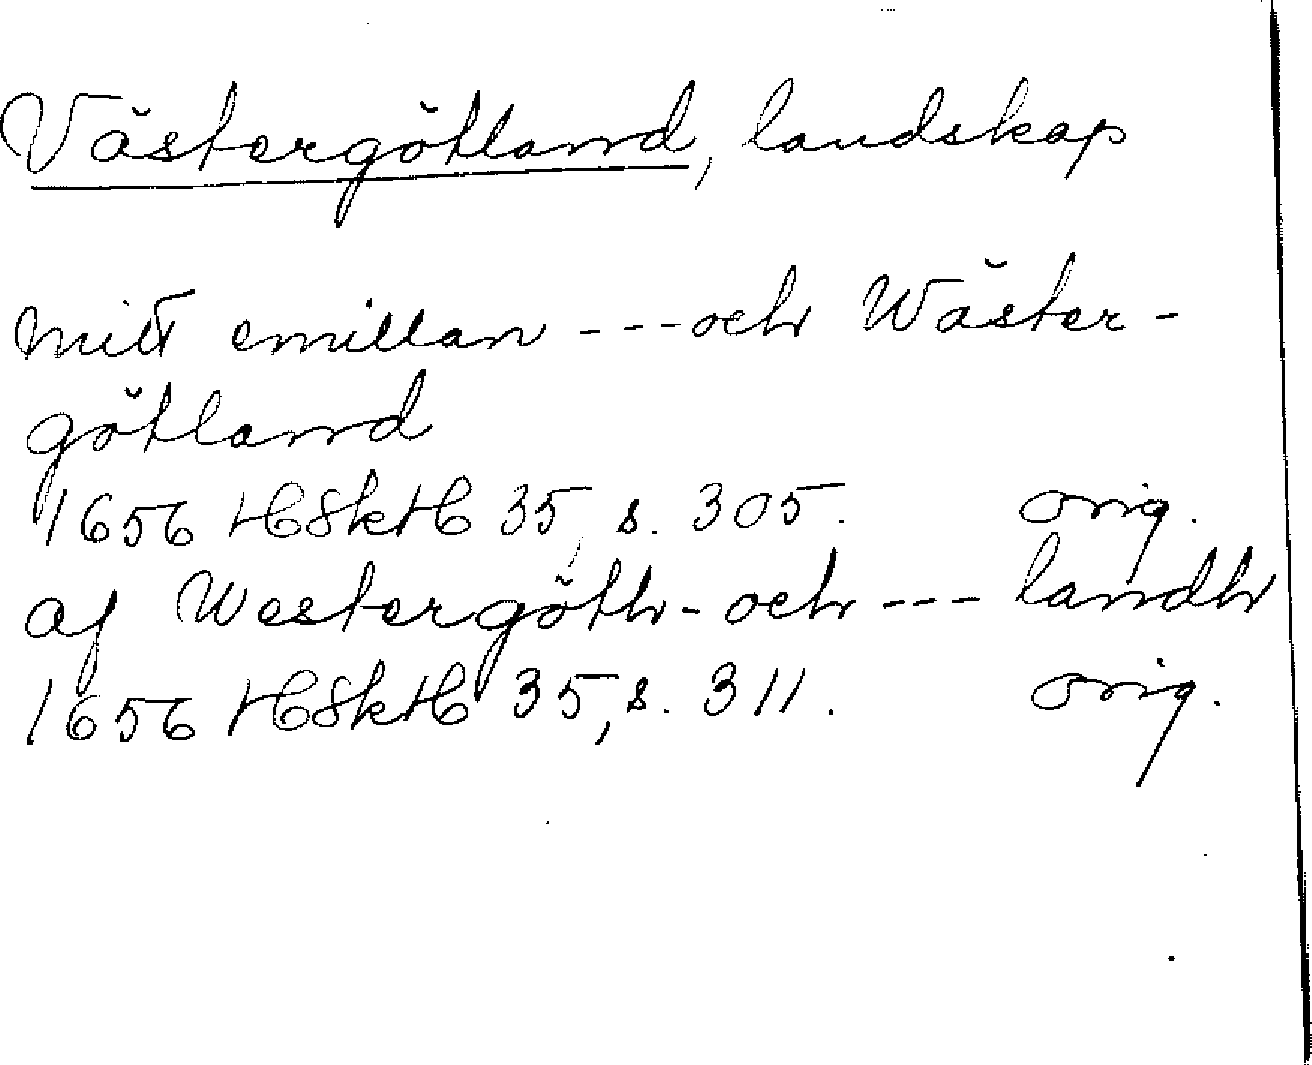 Västergötland, landskap
mitt emillan ---och Wäster-
götland
1656 HSkH 35, s. 305. orig.
af Westergöth- och --- landh
1656 HSkH 35, s. 311. orig.